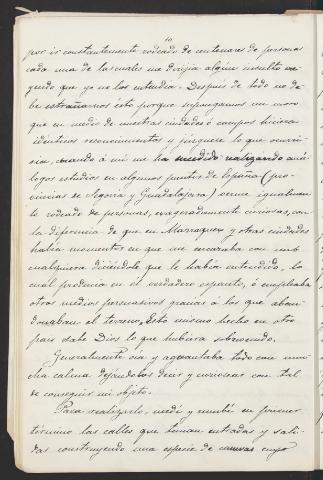 10
por ir constantemente rodeado de centenares de personas
cada una de las cuales me dirijia algun insulto cre-
yendo que yo no los entendia. Despues de todo no de-
be estrañarnos esto porque supongamos un moro
que en medio de nuestras ciudades ó campos hiciera
idénticos reconocimientos y júzguese lo que ocurri-
ria, cuando á mí me ha sucedido realizando aná-
logos estudios en algunos puntos de España (pro-
vincias de Segovia y Guadalajara) verme igualmen-
te rodeado de personas, exageradamente curiosas, con
la diferencia de que en Marraquex y otras ciudades
habia momentos en que me encaraba con uno
cualquiera diciéndole que le habia entendido, lo
cual producia en él verdadero espanto, ó empleaba
otros medios persuasivos gracias á los que aban-
donaban el terreno, Esto mismo hecho en otro
pais sabe Dios lo que hubiera sobrevenido.
Generalmente oia y aguantaba todo con mu-
cha calma dejándolos decir y curiosear con tal
de conseguir mi objeto.
Para realizarlo, medí y rumbé en primer
término las calles que tenian entradas y sali-
das construyendo una especie de canevas cuyo